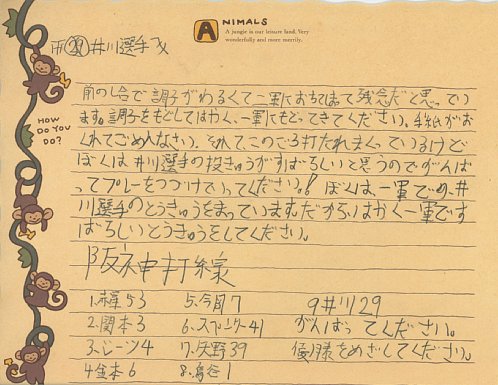 ANIMALS
A jungle is our leisure land. Very
wonderfully and more merrily.
㉙井川選手へ
HOW
DO YOU
DO?
前の試合で調子がわるくて二軍におちてしまって残念だと思ってい
ます。調子をもどしてはやく、一軍にもどってきてください。手紙がお
くれてごめんなさい。それで、このごろ打たれまくっているけど
ぼくは井川選手の投きゅうがすばらしいと思うのでがんば
ってプレーをつづけていってください。! ぼくは一軍での井
川選手のとうきゅうをまっています。だからはやく一軍です
ばらしいとうきゅうをしてください。
阪神打線
1.赤星53 5.今岡7 9井川29
2.関本3 6.スペンサー41 がんばってください。
3.シーツ4 7.矢野39 優勝をめざしてください。
4金本6 8.鳥谷1